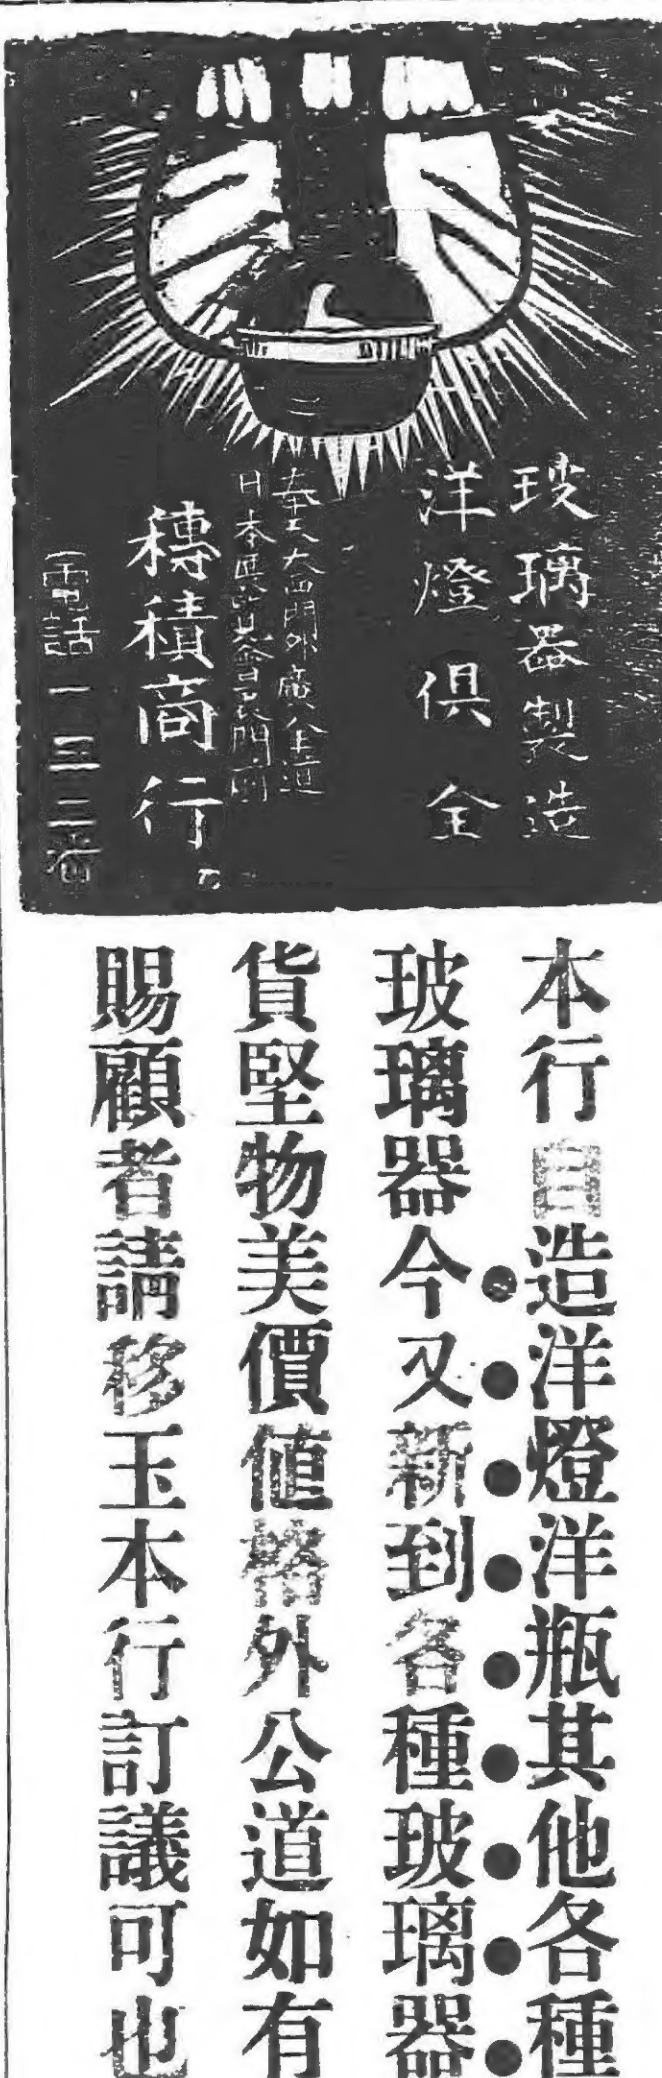 玻璃器製造
洋燈俱全
大西門外廣全道
日本
磚積商行
電話一三二番
本行自造洋燈洋瓶其他各種
玻璃器今又新到各種玻璃器
貨堅物美價值格外公道如有
賜顧者請移玉本行訂議可也